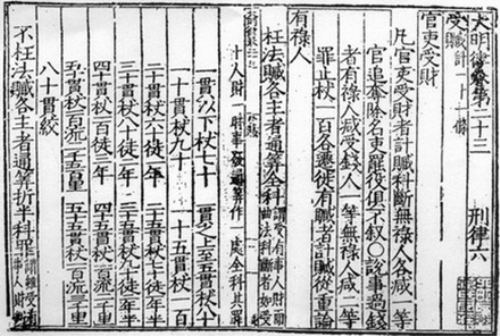 大明律卷第二十三　刑律六
受贓計一十一條
官吏受財
凡官吏受財者計贓科斷無祿人各減一等
官追奪除名吏罷役俱不叙〇說事過錢
者有祿人減受錢人一等無祿人減二等
罪止杖一百各遷徙有贓者計贓從重論
有祿人
枉法贓各主者通算全科謂受有事人財而曲法科斷者如受
十人財一時事發通算作一處全科其罪
一貫以下杖七十　一貫之上至五貫杖八十
一十貫杖九十　一十五貫杖一百
二十貫杖六十徒一年　二十五貫杖七十徒一年半
三十貫杖八十徒二年　三十五貫杖九十徒二年半
四十貫杖一百徒三年　四十五貫杖一百流二千里
五十貫杖一百流二千五百里　五十五貫杖一百流三千里
八十貫絞
不枉法贓各主者通算折半科罪